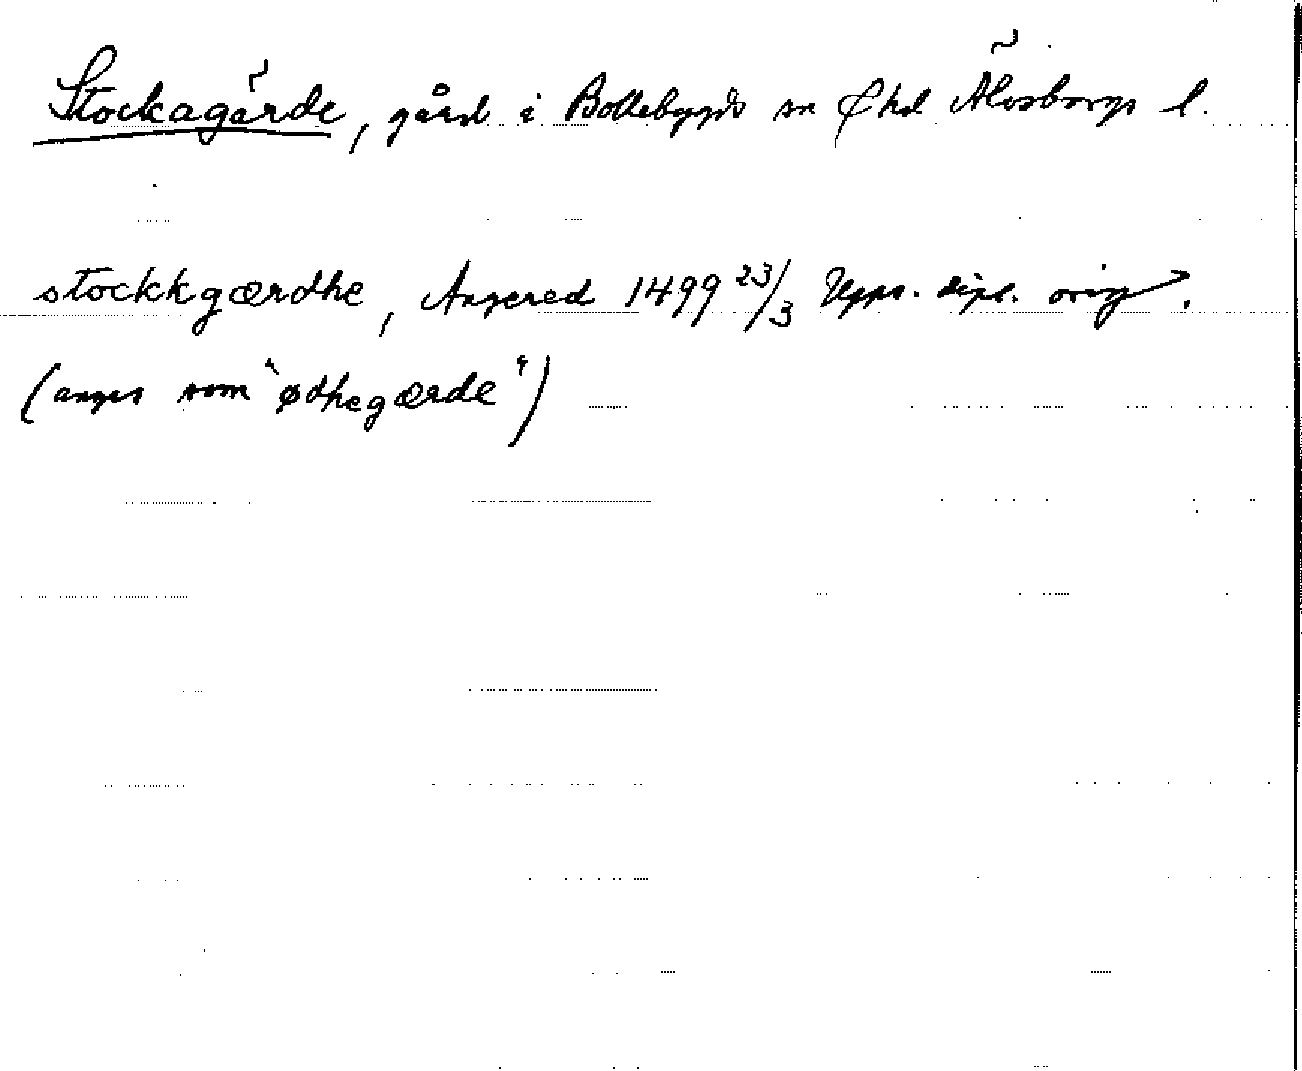 Stockagärde, gård i Bollebygds sn hd Älvsborgs l.
stockkgærdhe, Angered 1499 23/3 Upps. dipl. orig.
(anges som "ødhegærde")